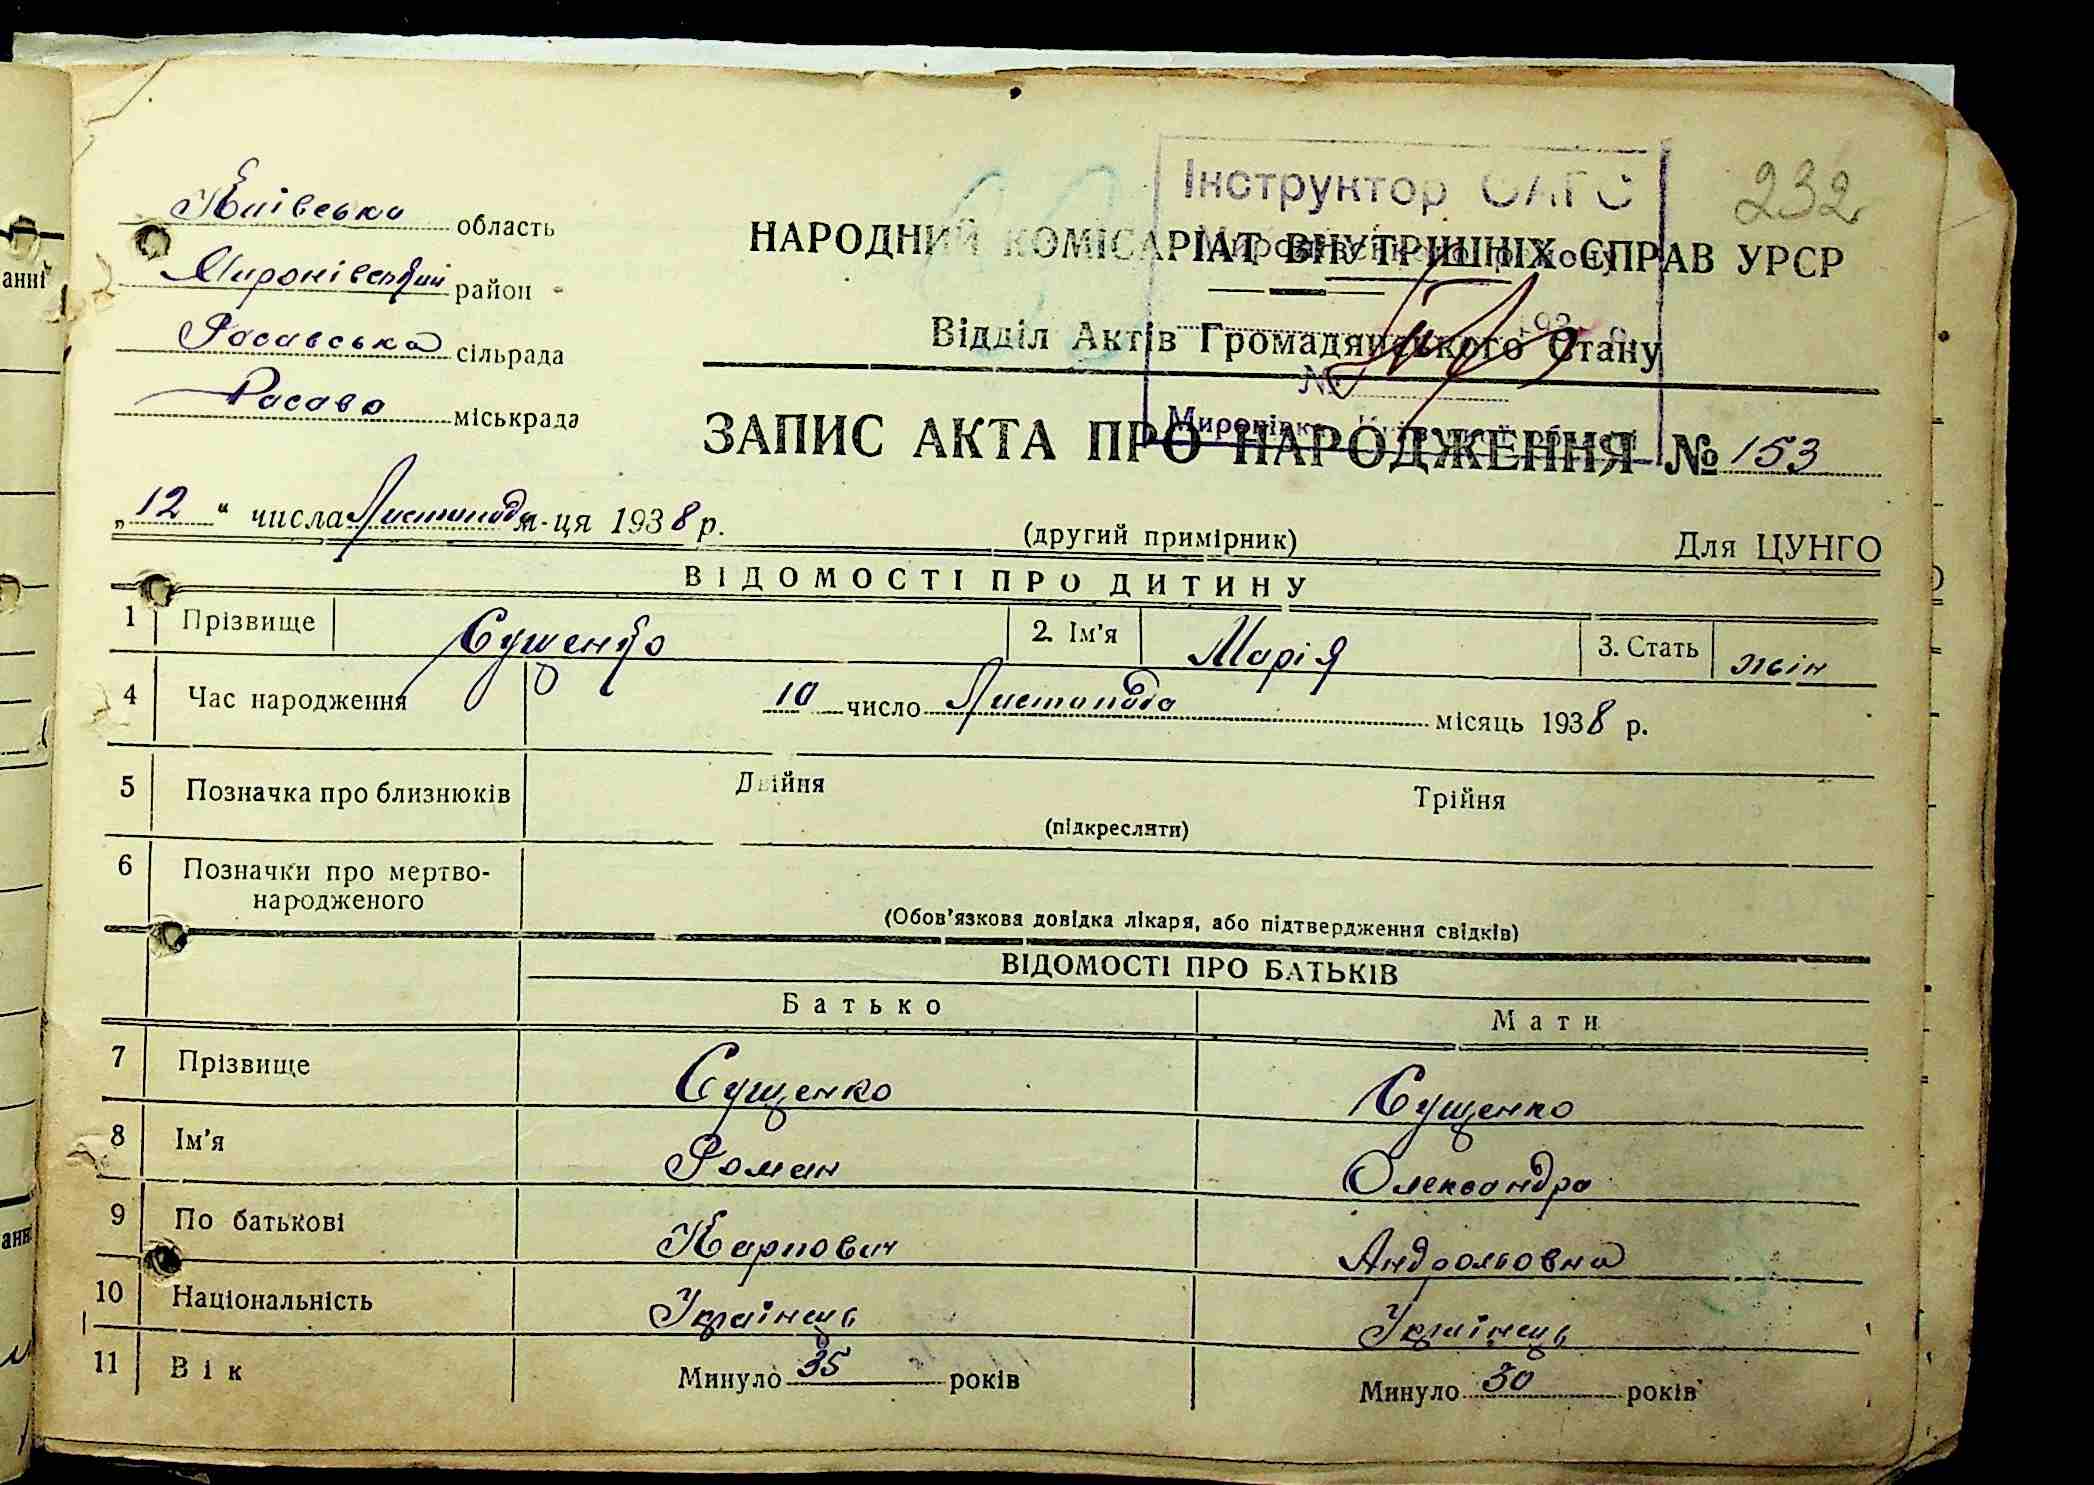 232
Інструктор ОАГС
Київська область
НАРОДНИЙ КОМІСАРІАТ ВНУТРІШНІХ СПРАВ УРСР
Миронівський район
Расавська сільрада
Відділ Актів Громадянського Стану
193
№
Расава міськрада
ЗАПИС АКТА ПРО НАРОДЖЕННЯ № 153
„12“ числа Листопада м-ця 1938 р.
(другий примірник)
Для ЦУНГО
ВІДОМОСТІ ПРО ДИТИНУ
1 Прізвище Сущенко 2. Ім'я Марія 3. Стать жін
4 Час народження 10 число Листопада місяць 1938 р.
5 Позначка про близнюків Двійня Трійня
(підкреслити)
6 Позначки про мертво-
народженого
(Обов'язкова довідка лікаря, або підтвердження свідків)
ВІДОМОСТІ ПРО БАТЬКІВ
Батько Мати
7 Прізвище Сущенко Сущенко
8 Ім'я Роман Олександра
9 По батькові Карпович
10 Національність Українець Українець
11 Вік Минуло 35 років Минуло 30 років